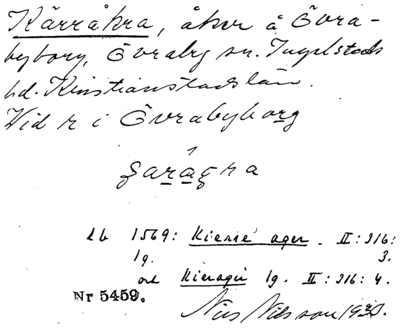 Kärråkra, åker å Övra-
byborg, Övraby sn. Ingelstads
hd. Kristianstads län.
Vid r i Övrabyborg
ʹ
ʒaragra
Lb 1569: Kierre ager. II:316:
3.
lg.
och Kieragir lg. II:316:4.
Nr 5459.
Nils Nilsson 1930.